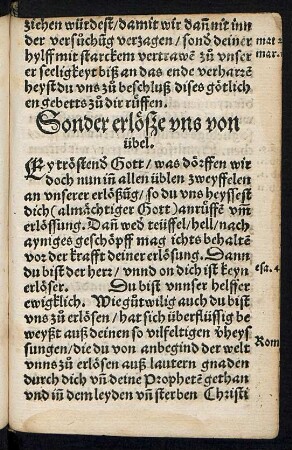 ziehen würdest/damit wir dañ nit inn
der versüchũg verzagen/sond deiner
hylff mit starckem vertrawẽ zů vnser
er seeligkeyt biß an das ende verharrẽ
heyst du vns zů beschluß dises götlich
en gebetts zů dir růffen.
Sonder erlösze vns von
übel.
EY tröstend Gott/was dörffen wir
doch nun iñ allen üblen zweyffelen
an vnserer erlößũg/so du vns heyssest
dich (almåchtiger Gott) anrůffẽ vm̃
erlössung. Dañ wed teüffel/hell/nach
ayniges geschöpff mag ichts behaltẽ
vor der krafft deiner erlösung. Dann
du bist der herr/vnnd on dich ist keyn
erlöser. Du bist vnnser helffer
ewigklich. Wie gůtwilig auch du bist
vns zů erlösen/hat sich überflüssig be
weyßt auß deinen so vilfeltigen vheys
sungen/die du von anbegind der welt
vnns zů erlösen auß lautern gnaden
durch dich vñ deine Prophetẽ gethan
vnd iñ dem leyden vñ sterben Christi
mat
mar.
esa. 4
Rom